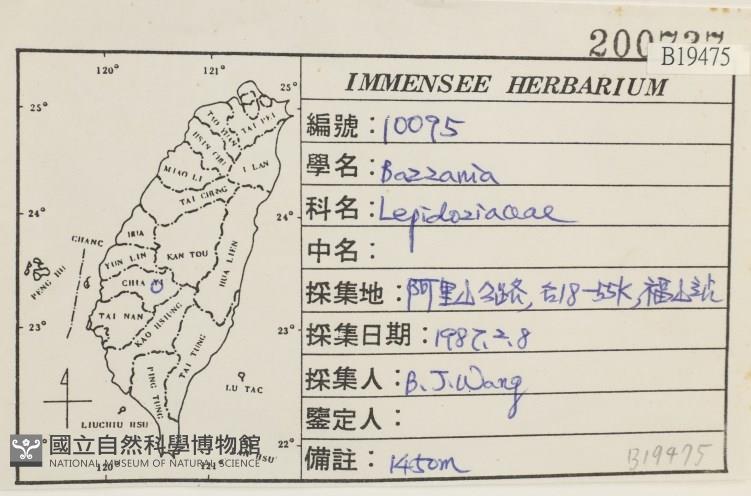 200737
B19475
IMMENSEE HERBARIUM
編號：10095
學名：Bazzania
科名：Lepidoziaceae
中名：
採集地：阿里山公路，台18-55K，福山站
採集日期：1987.2.8
採集人：B.J.Wang
鑒定人：
備註：1450m
B19475
120°
121°
25°
25°
TAI PEI
I LAN
MIAO LI
TAI CHUNG
24°
24°
CHANG
HUA
YUN LIN
KAN TOU
HUA LIEN
PENG HU
CHIA I
TAI NAN
KAO HSIUNG
23°
23°
TAI TUNG
PING TUNG
LU TAO
LIUCHIU HSU
22°
120°
121°
HSU
國立自然科學博物館
NATIONAL MUSEUM OF NATURAL SCIENCE